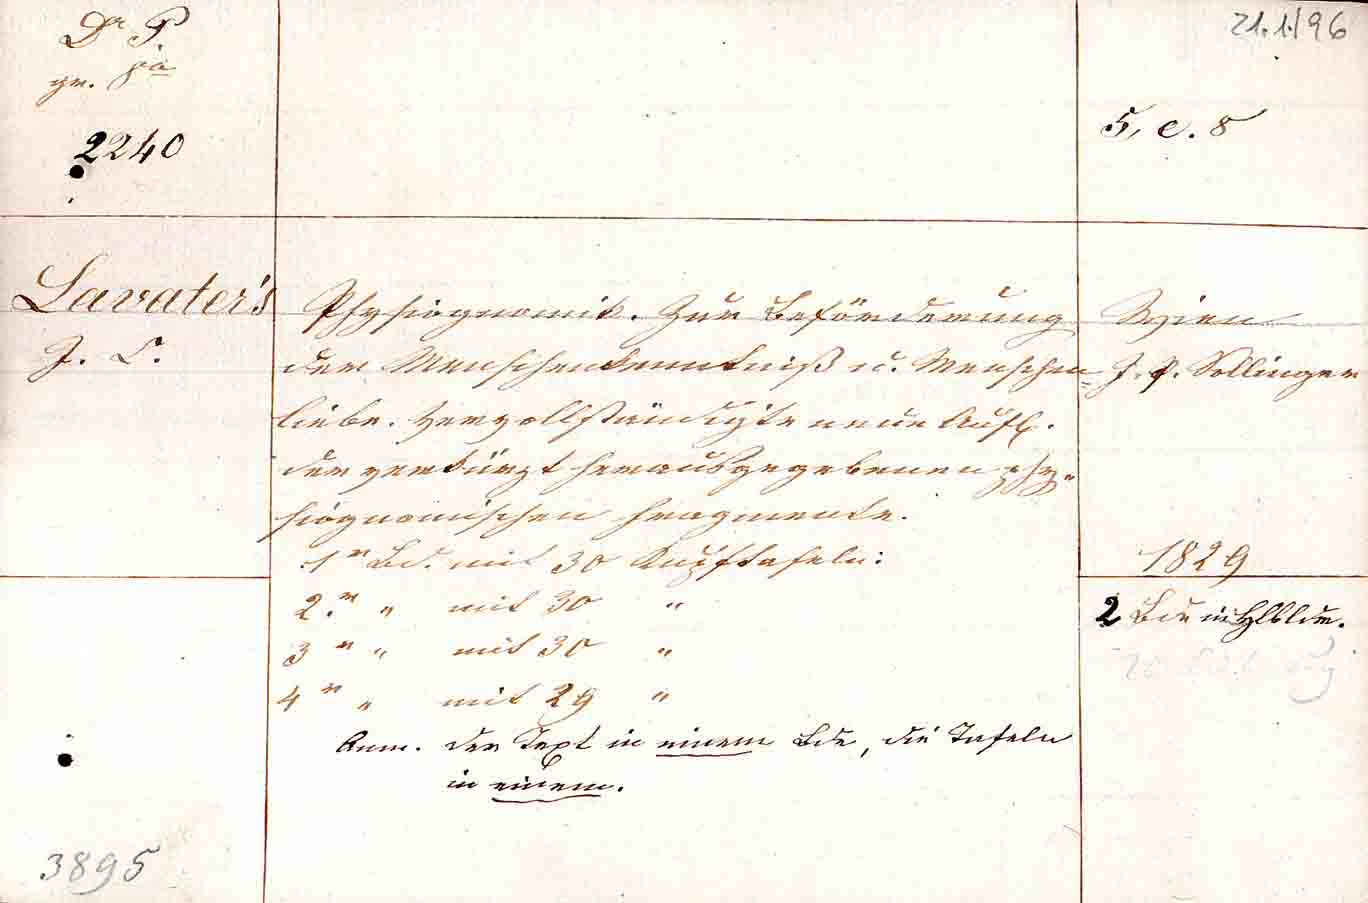 Dr P.
gr. 8°
2240
21.1.96
5, c. 8
Lavater's
J. C.
Physiognomik. Zur Beförderung
der Menschenkenntniß u. Menschen-
liebe. Vervollständigte neue Aufl.
der verkürzt herausgegebenen phy-
siognomischen Fragmente.
1r Bd. mit 30 Kupftafeln:
2.r " mit 30 "
3 r " mit 30 "
4 r " mit 29 "
Anm. der Text in einem Bde, die Tafeln
in einem.
Wien
J. P. Sollinger
1829
2 Bde in Hlblde.
3895